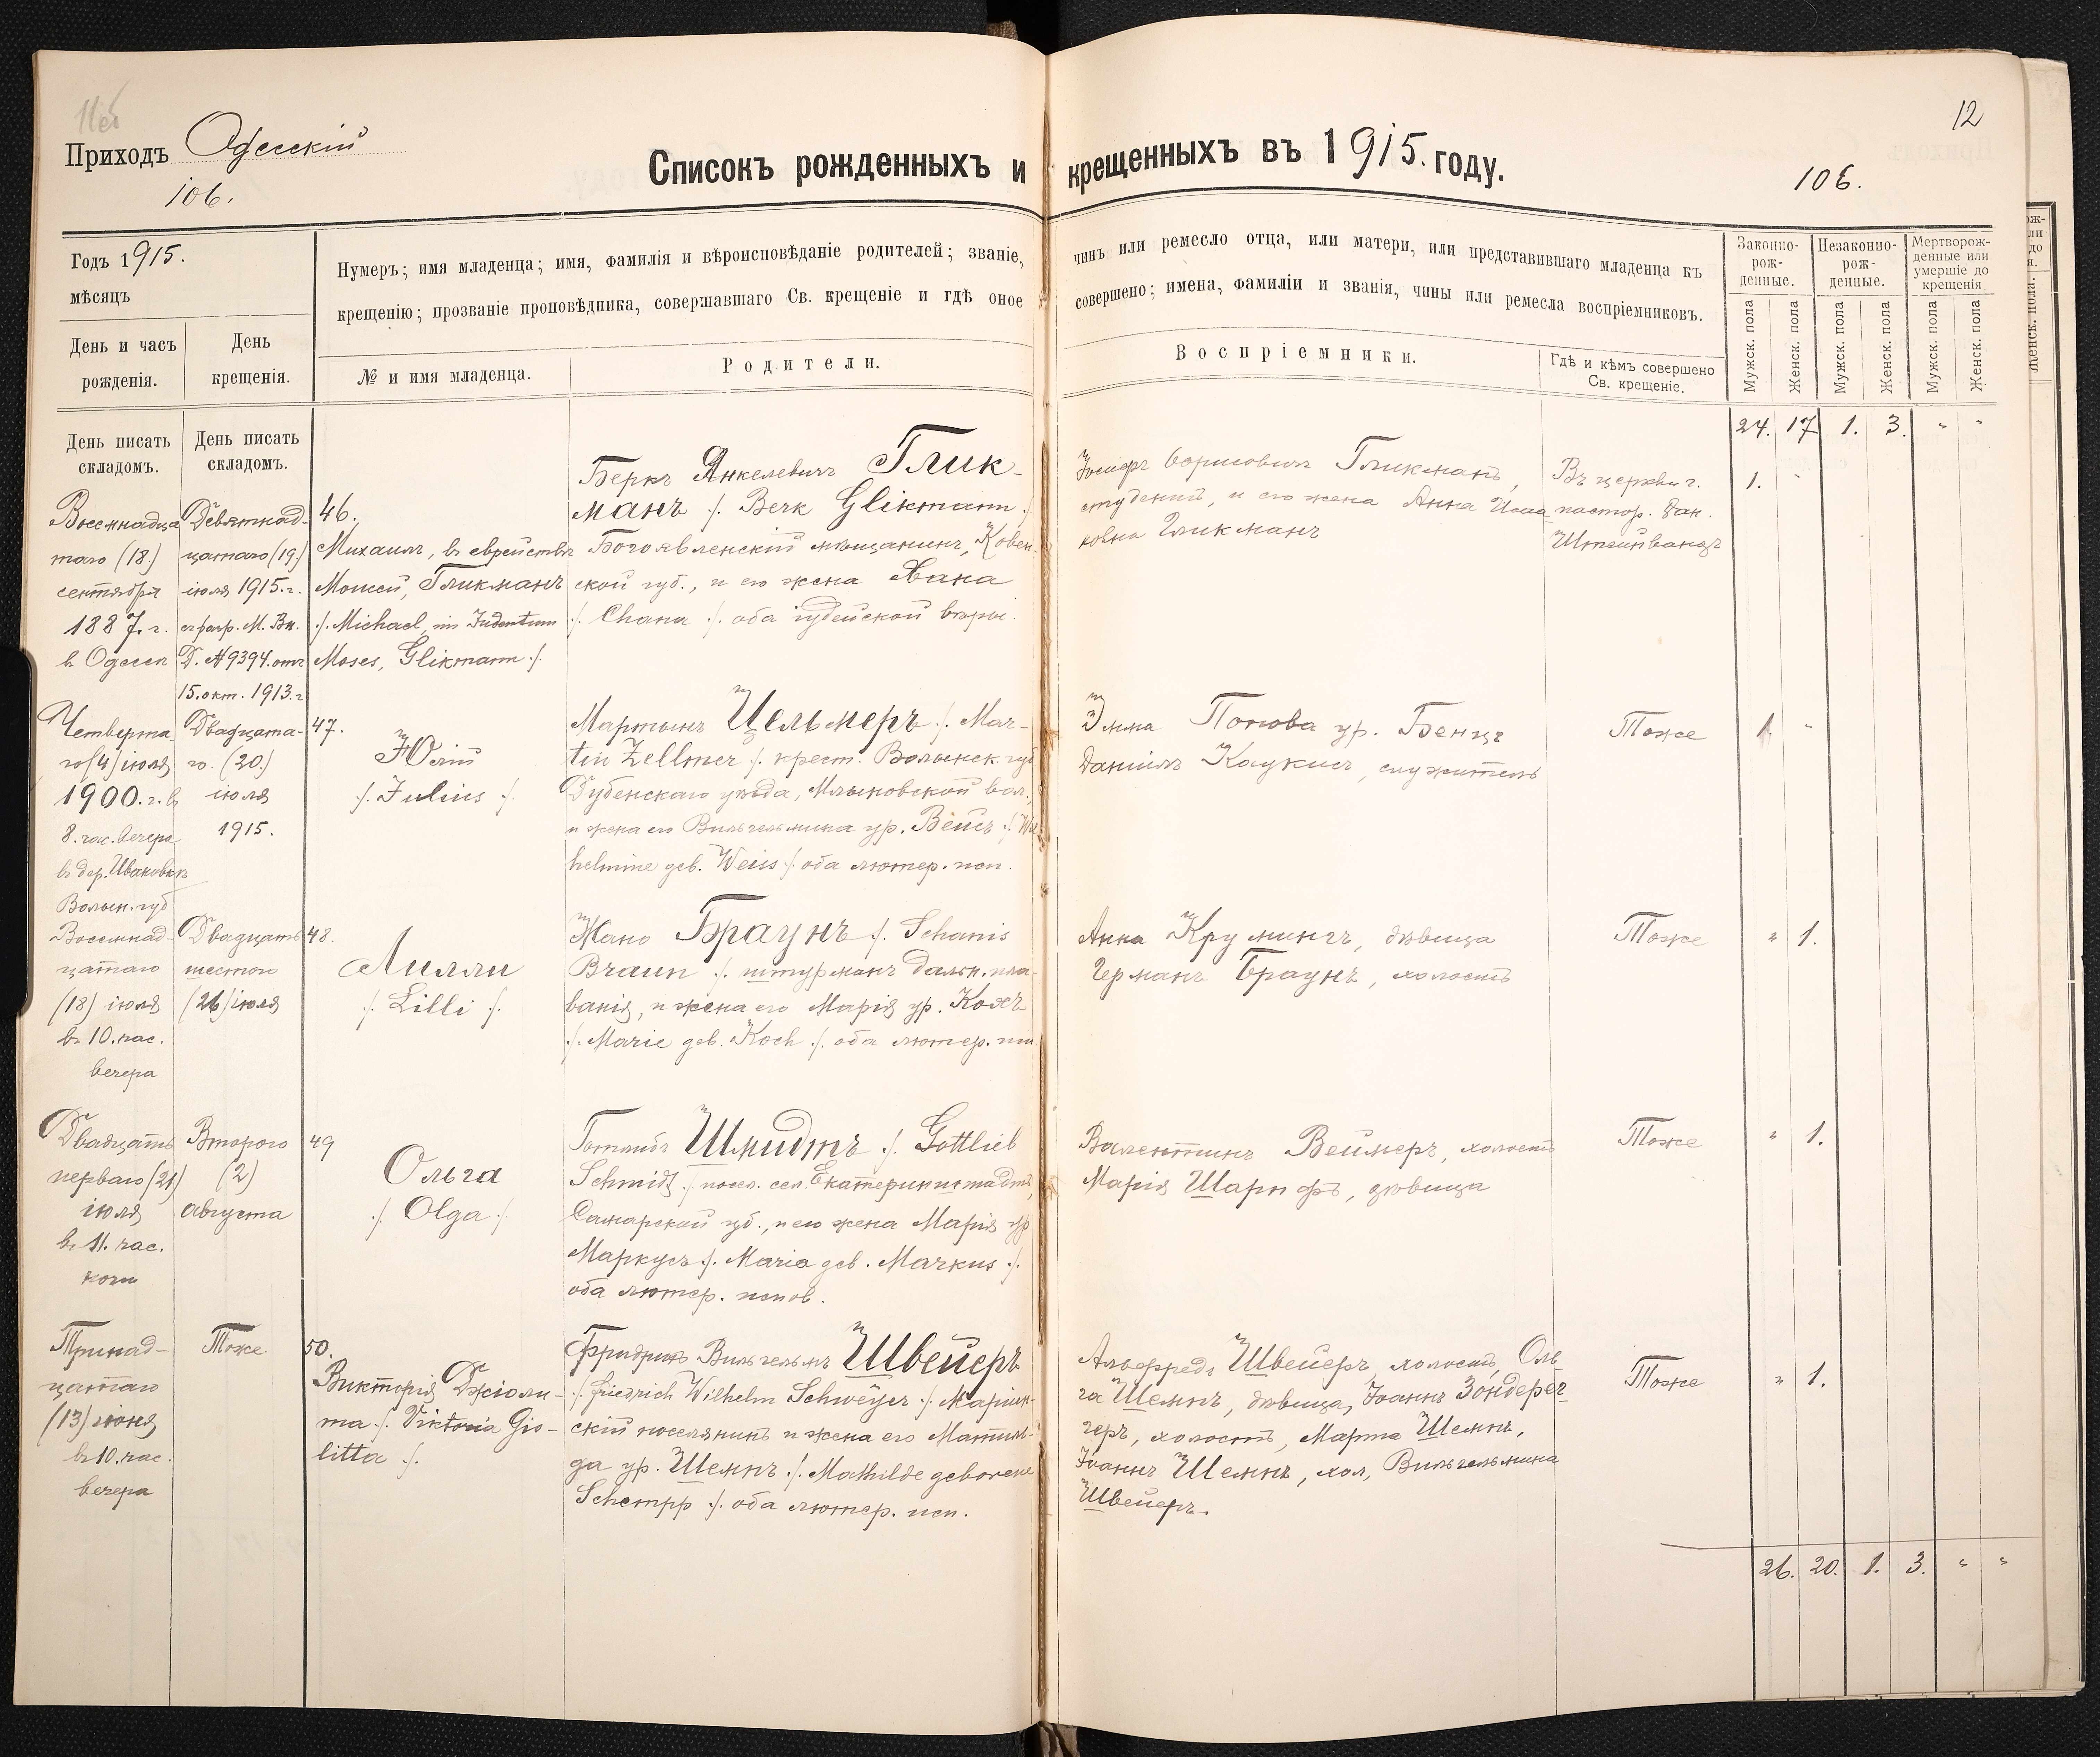 12
Приходъ Одесскій
106.
Списокъ рожденныхъ и крещенныхъ въ 1915. году.
106.
Годъ 1915.
мѣсяцъ
День и часъ рожденія.
День крещенія.
Нумеръ; имя младенца; имя, фамилія и вѣроисповѣданіе родителей; званіе, чинъ или ремесло отца, или матери, или представившаго младенца къ
крещенію; прозваніе проповѣдника, совершавшаго Св. крещеніе и гдѣ оное совершено; имена, фамиліи и званія, чины или ремесла воспріемниковъ.
№ и имя младенца.
Родители.
Воспріемники.
Гдѣ и кѣмъ совершено Св. крещеніе.
Законно-рож-денные.
Незаконно-рож-денные.
Мертворож-денные или умершіе до крещенія
Мужск. пола
Женск. пола
Мужск. пола
Женск. пола
Мужск. пола
Женск. пола
День писать складомъ.
День писать складомъ.
24. 17 1. 3. " "
Восемнадца
таго (18.)
сентября
1887. г.
в Одессѣ
Девятнад-
цатаго (19.)
іюля 1915. г.
с разр. М. Вн.
Д. №9394. отъ
15. окт. 1913. г
46.
Михаилъ, въ еврействѣ
Моисей, Гликманъ
./. Michael, im Judentum
Moses, Glikmann ./.
Беркъ Янкелевичъ Глик-
манъ ./. Berk Glikmann ./.
Богоявленскій мѣщанинъ, Ковен-
ской губ., и его жена Хана
./. Chana ./. оба іудейской вѣры.
Іосифъ Борисовичъ Гликманъ,
студентъ, и его жена Анна Исаа
ковна Гликманъ
Въ церкви г.
пастор. Дан.
Штейнвандъ
1. "
Четверта-
го (4) іюля
1900. г. в
8. час. вечера
въ дер. Ивановкѣ
Волын. губ
Двадцата-
го. (20.)
іюля
1915.
47.
Юлій
./. Julius ./.
Мартынъ Цельмеръ ./. Mar-
tin Zellmer ./. крест. Волынск. губ
Дубенскаго уѣзда, Млыновской вол.,
и жена его Вильгельмина ур. Вейсъ ./. Wil
helmine geb. Weiss ./. оба лютер. исп.
Эмма Попова ур. Бенцъ
Даніилъ Каукисъ, служитель
Тоже
1. "
Восемнад-
цатаго
(18) іюля
въ 10. час.
вечера
Двадцать
шестого
(26) іюля
48.
Лилли
./. Lilli ./.
Жано Браунъ ./. Schanis
Braun ./. штурманъ дальн. пла-
ванія, и жена его Марія ур. Кохъ
./. Marie geb. Koch ./. оба лютер. исп
Анна Круминъ, дѣвица
Германъ Браунъ, холостъ
Тоже
" 1.
Двадцать
перваго (21)
іюля
въ 11. час.
ночи
Второго
(2)
августа
49
Ольга
./. Olga ./.
Готлибъ Шмидтъ ./. Gottlieb
Schmidt ./. посел. сел. Екатериненштадтъ,
Самарской губ., и его жена Марія ур
Маркусъ ./. Maria geb. Markus ./.
оба лютер. испов.
Валентинъ Веймеръ, холостъ
Марія Шарпфъ, дѣвица
Тоже
" 1.
Тринад-
цатаго
(13) іюня
въ 10. час.
вечера
Тоже
50.
Викторія Джіоли-
та ./. Viktoria Gio-
litta ./.
Фридрихъ Вильгельмъ Швейеръ
./. Friedrich Wilhelm Schweÿer ./. Маріин-
скій поселянинъ и жена его Матиль-
да ур. Шемпъ ./. Mathilde geborene
Schempp ./. оба лютер. исп.
Альфредъ Швейеръ, холостъ, Оль-
га Шемпъ, дѣвица, Іоаннъ Зондерег-
геръ, холостъ, Марта Шемпъ,
Іоаннъ Шемпъ, хол, Вильгельмина
Швейеръ.
Тоже
" 1.
26. 20. 1. 3. " "